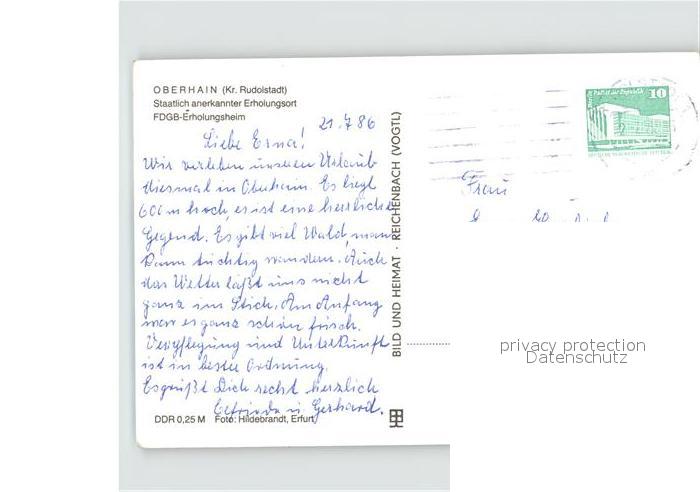 OBERHAIN (Kr. Rudolstadt)
Staatlich anerkannter Erholungsort
FDGB-Erholungsheim
21.7.86
Liebe Erna!
Wir verleben unseren Urlaub
diesmal in Oberhain. Es liegt
600 m hoch, es ist eine herrliche
Gegend. Es gibt viel Wald, man
kann tüchtig wandern. Auch
das Wetter läßt uns nicht
ganz im Stich. Am Anfang
war es ganz schön frisch.
Verpflegung und Unterkunft
ist in bester Ordnung.
Es grüßt Dich recht herzlich
Elfriede u. Gerhard.
DDR 0,25 M Foto: Hildebrandt, Erfurt
BILD UND HEIMAT · REICHENBACH (VOGTL)
10
Frau
privacy protection
Datenschutz